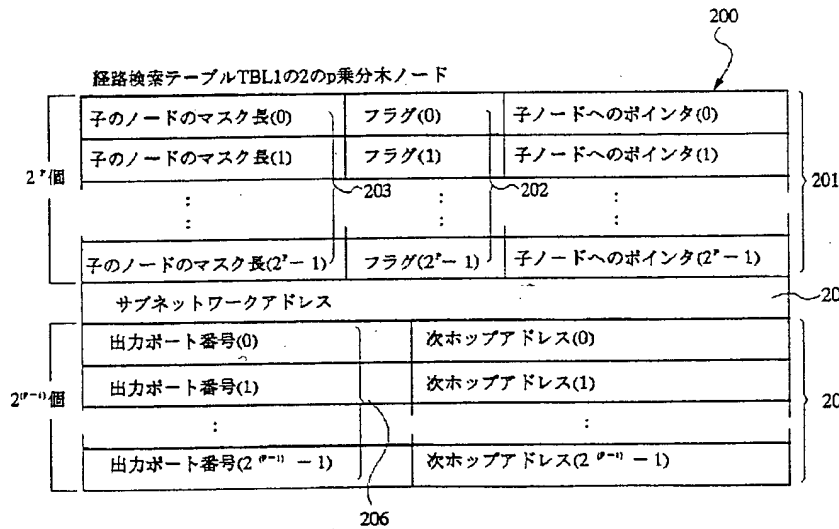 200
経路検索テーブルTBL1の2のp乗分木ノード
子のノードのマスク長(0) フラグ(0) 子ノードへのポインタ(0)
子のノードのマスク長(1) フラグ(1) 子ノードへのポインタ(1)
2^p個 203 202 201
: : :
: : :
子のノードのマスク長(2^p−1) フラグ(2^p−1) 子ノードへのポインタ(2^p−1)
サブネットワークアドレス 20
出力ポート番号(0) 次ホップアドレス(0)
出力ポート番号(1) 次ホップアドレス(1)
2^(p-1)個 20
: :
出力ポート番号(2^(p-1)−1) 次ホップアドレス(2^(p-1)−1)
206